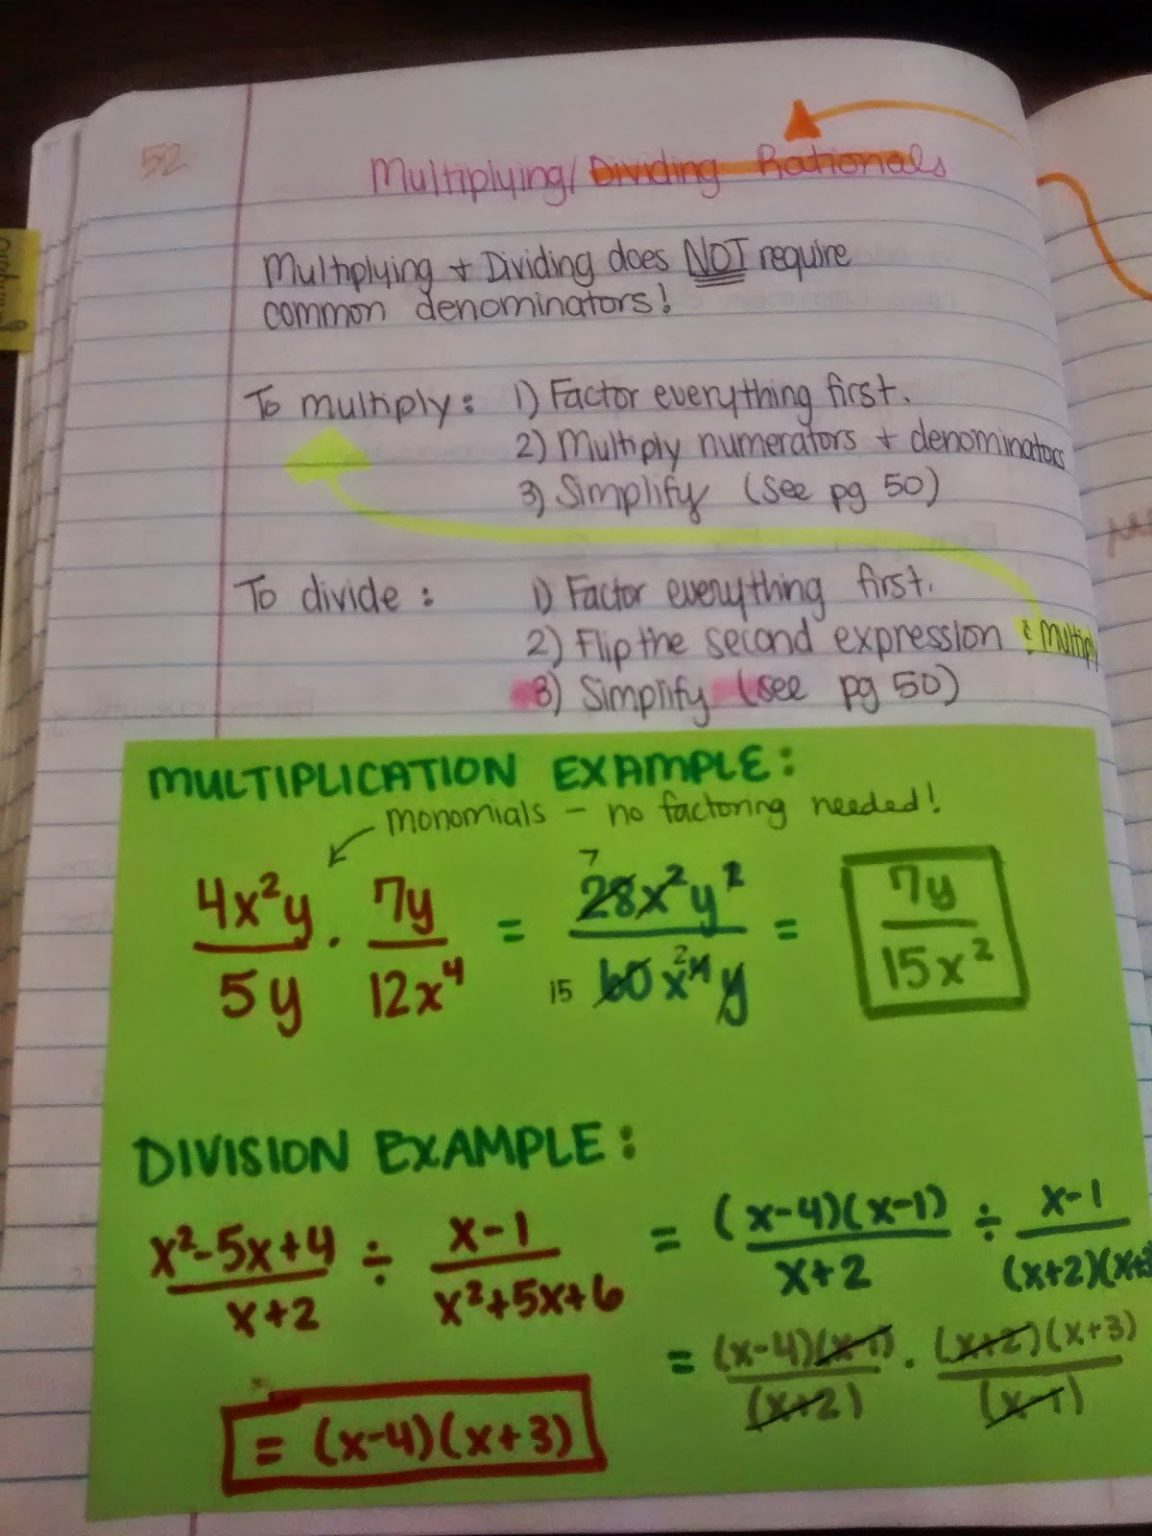 52
Multiplying/Dividing Rationals
Multiplying + Dividing does NOT require
common denominators!
To multiply: 1) Factor everything first.
2) Multiply numerators + denominators
3) Simplify (see pg 50)
To divide: 1) Factor everything first.
2) Flip the second expression & Multiply
3) Simplify (see pg 50)
MULTIPLICATION EXAMPLE:
monomials – no factoring needed!
4x²y/5y · 7y/12x⁴ = 7 28x²y²/15 60x² ⁴y = 7y/15x²
DIVISION EXAMPLE:
x²-5x+4/x+2 ÷ x-1/x²+5x+6 = (x-4)(x-1)/x+2 ÷ x-1/(x+2)(x+3
= (x-4)(x-1)/(x+2) · (x+2)(x+3)/(x-1)
= (x-4)(x+3)